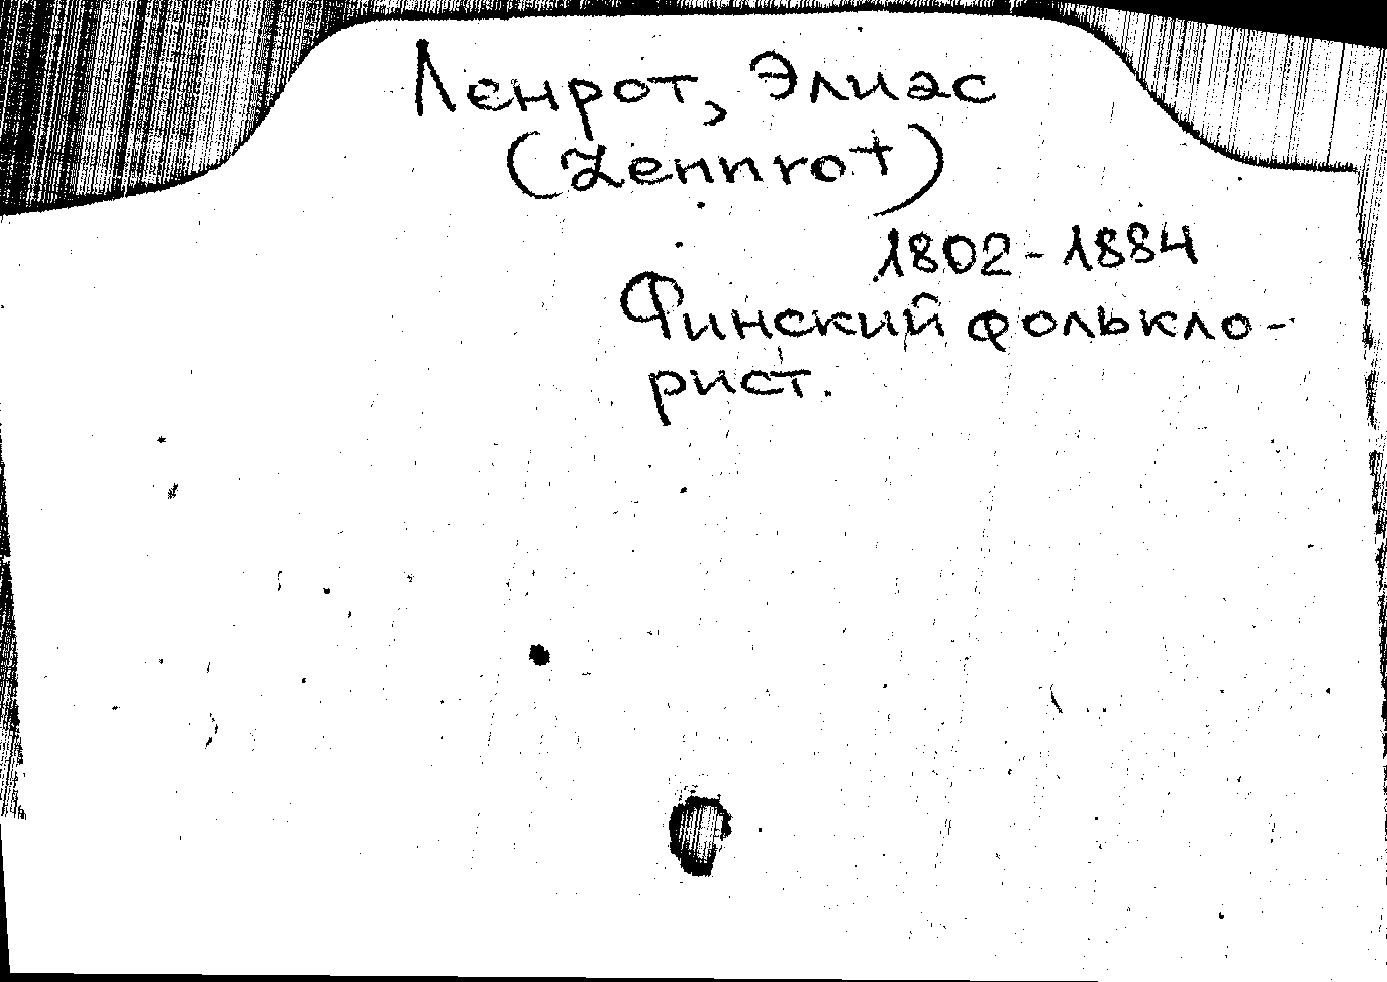 Ленрот, Элиас
(Lennrot)
1802-1884
Финский фолькло-
рист.